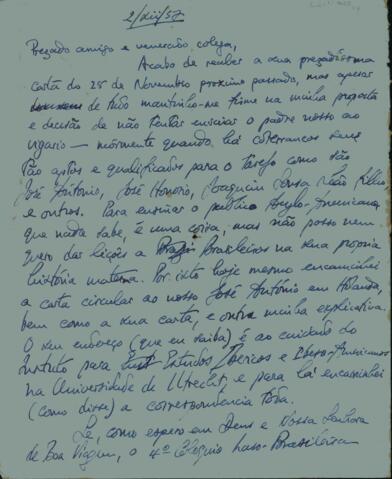 2/xii/57
Prezado amigo e venerado colega,
Acabo de receber a sua prezadíssima
carta do 28 de Novembro proximo passado, mas apesar
de tudo mantenho-me firme na minha proposta
e decisão de não tentar ensinar o padre nosso ao
vigario — mormente quando há conterraneos seus
tão aptos e qualificados para o tarefa como são
José António, José Honorio, Joaquim Sousa Leão Filho,
e outros. Para ensinar o publico Anglo-Americano,
que nada sabe, é uma coisa, mas não posso nem
quero dar lições a Brasileiros na sua propria
história materna. Por isto hoje mesmo encaminhei
a carta circular ao nosso José António em Holanda,
bem como a sua carta, e outra minha explicativa.
O seu endereço (que eu saiba) é ao cuidado do
Instituto para Estudos Ibericos e Ibero-Americanos
na Universidade de Utrecht, e para lá encaminhei
(como disse) a correspondencia toda.
Se, como espero em Deus e Nossa Senhora
de Boa Viagem, o 4º Coloquio Luso-Brasileiro